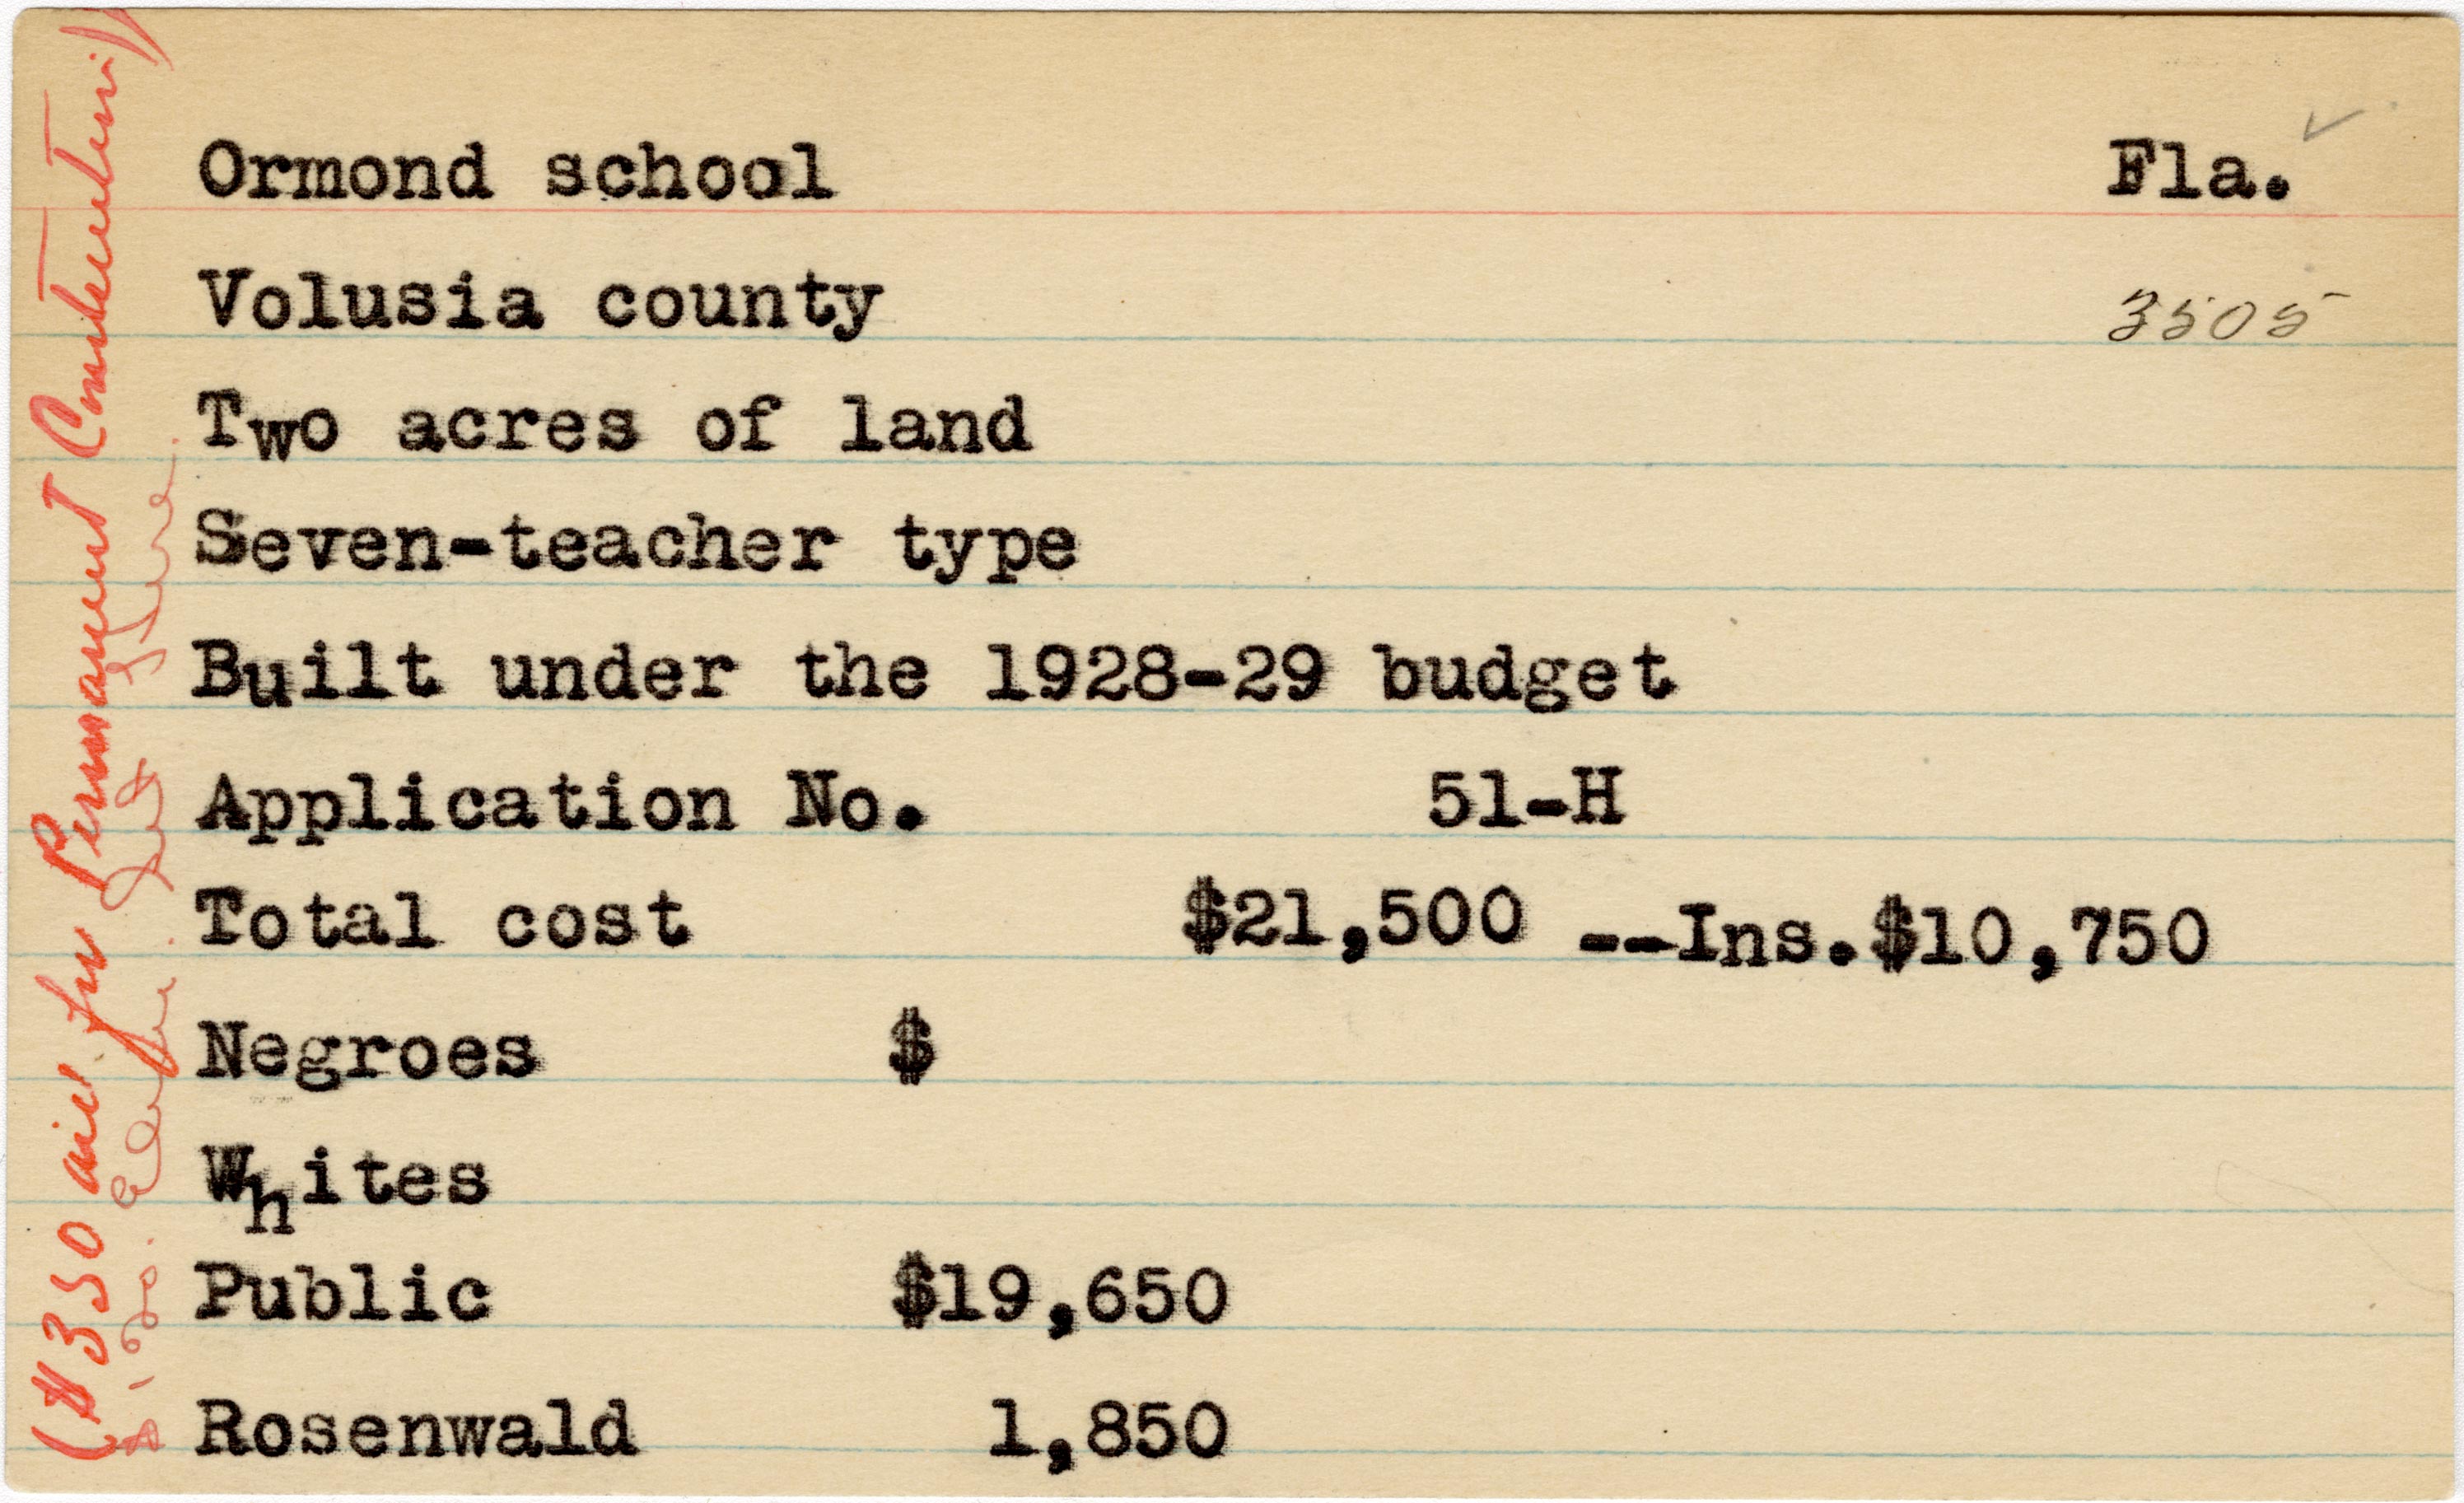 Ormond school Fla.
Volusia county 3505
Two acres of land
Seven-teacher type
Built under the 1928-29 budget
Application No. 51-H
Total cost $21,500 --Ins.$10,750
Negroes $
Whites
Public $19,650
Rosenwald 1,850
($350 aid for Permanent Construction)